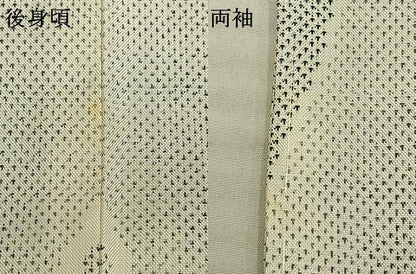 後身頃
両袖